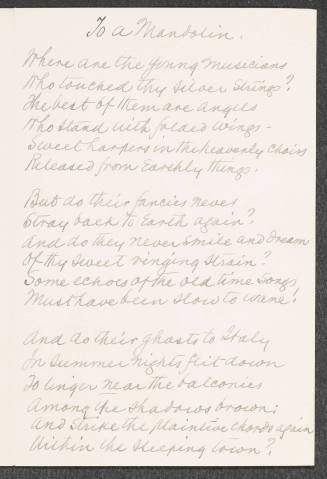 To a Mandolin.
Where are the young musicians
Who touched thy silver strings?
The best of them are angels
Who stand with folded wings –
Sweet harpers in the heavenly choirs
Released from Earthly things.
But do their fancies never
Stray back to Earth again?
And do they never smile and dream
Of thy sweet ringing strain?
Some echoes of the old time songs
Must have been slow to wane!
And do their ghosts to Italy
In summer nights flit down
To linger near the balconies
Among the shadows brown;
And strike the plaintive chords again
Within the sleeping town?